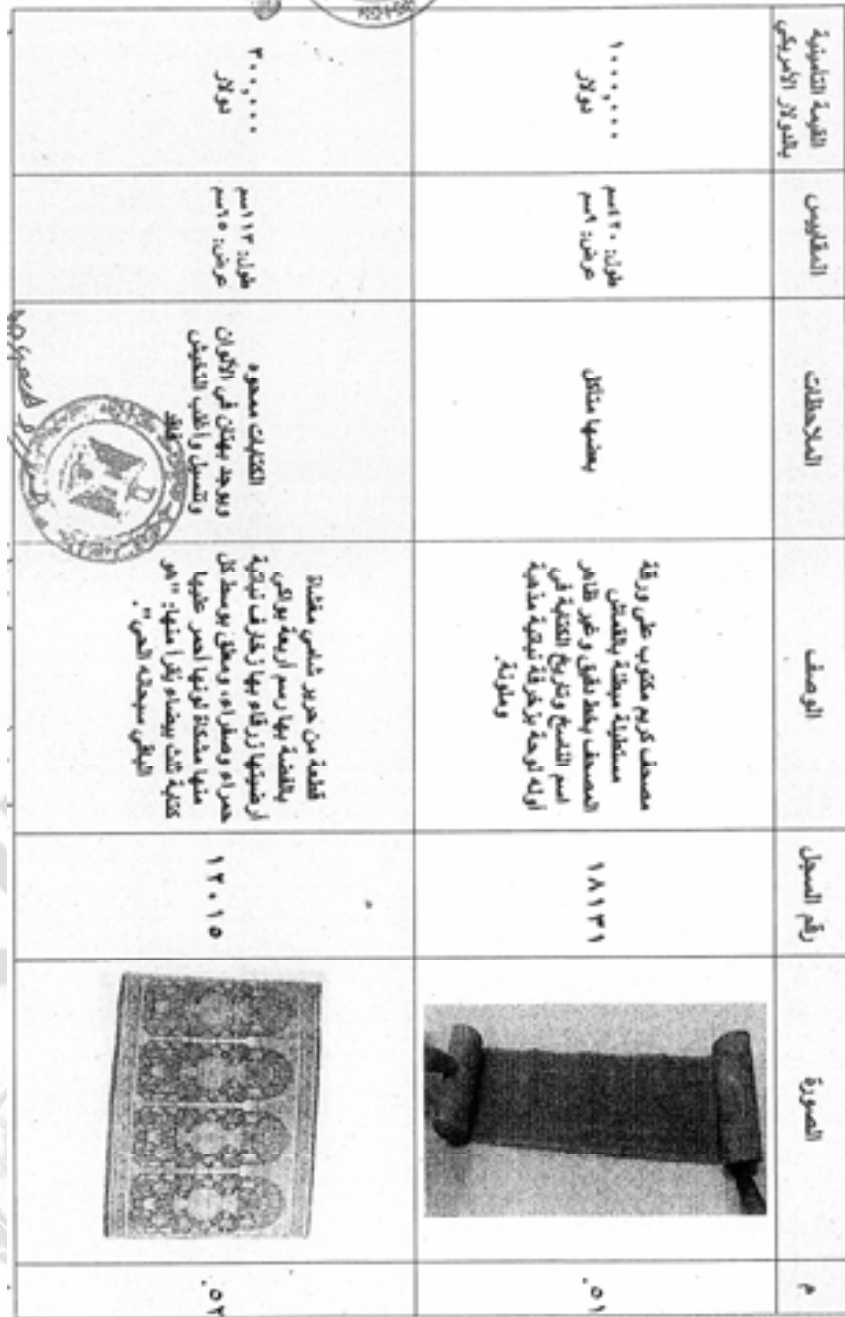 م
الصورة
رقم السجل
الوصف
الملاحظات
المقاييس
القيمة التأمينية
بالدولار الأمريكي
٥١.
١٨١٣١
مصحف كريم مكتوب على ورقة
مستطيلة مبطنة بالقماش
المصحف بخط دقيق وغير ظاهر
اسم الناسخ وتاريخ الكتابة في
أوله لوحة بزخرفة نباتية مذهبة
وملونة.
بعضها متآكل
طول: ٤٢٠سم
عرض: ٩سم
١٠٠٠,٠٠٠
دولار
٥٢.
١٣٠١٥
قطعة من حرير شامي مغشاة
بالفضة بها رسم أربعة بوائكي
أرضيتها زرقاء بها زخارف نباتية
حمراء وصفراء، ومعلق بوسط كل
منها مشكاة لونها أحمر عليها
كتابة ثلث بيضاء يقرأ منها: "هو
الباقي سبحانه الحي".
الكتابات ممحوه
ويوجد بهتان في الألوان
وتنسيل وأغلب التخيش
فقد
طول: ١١٣سم
عرض: ٦٥سم
٣٠٠,٠٠٠
دولار